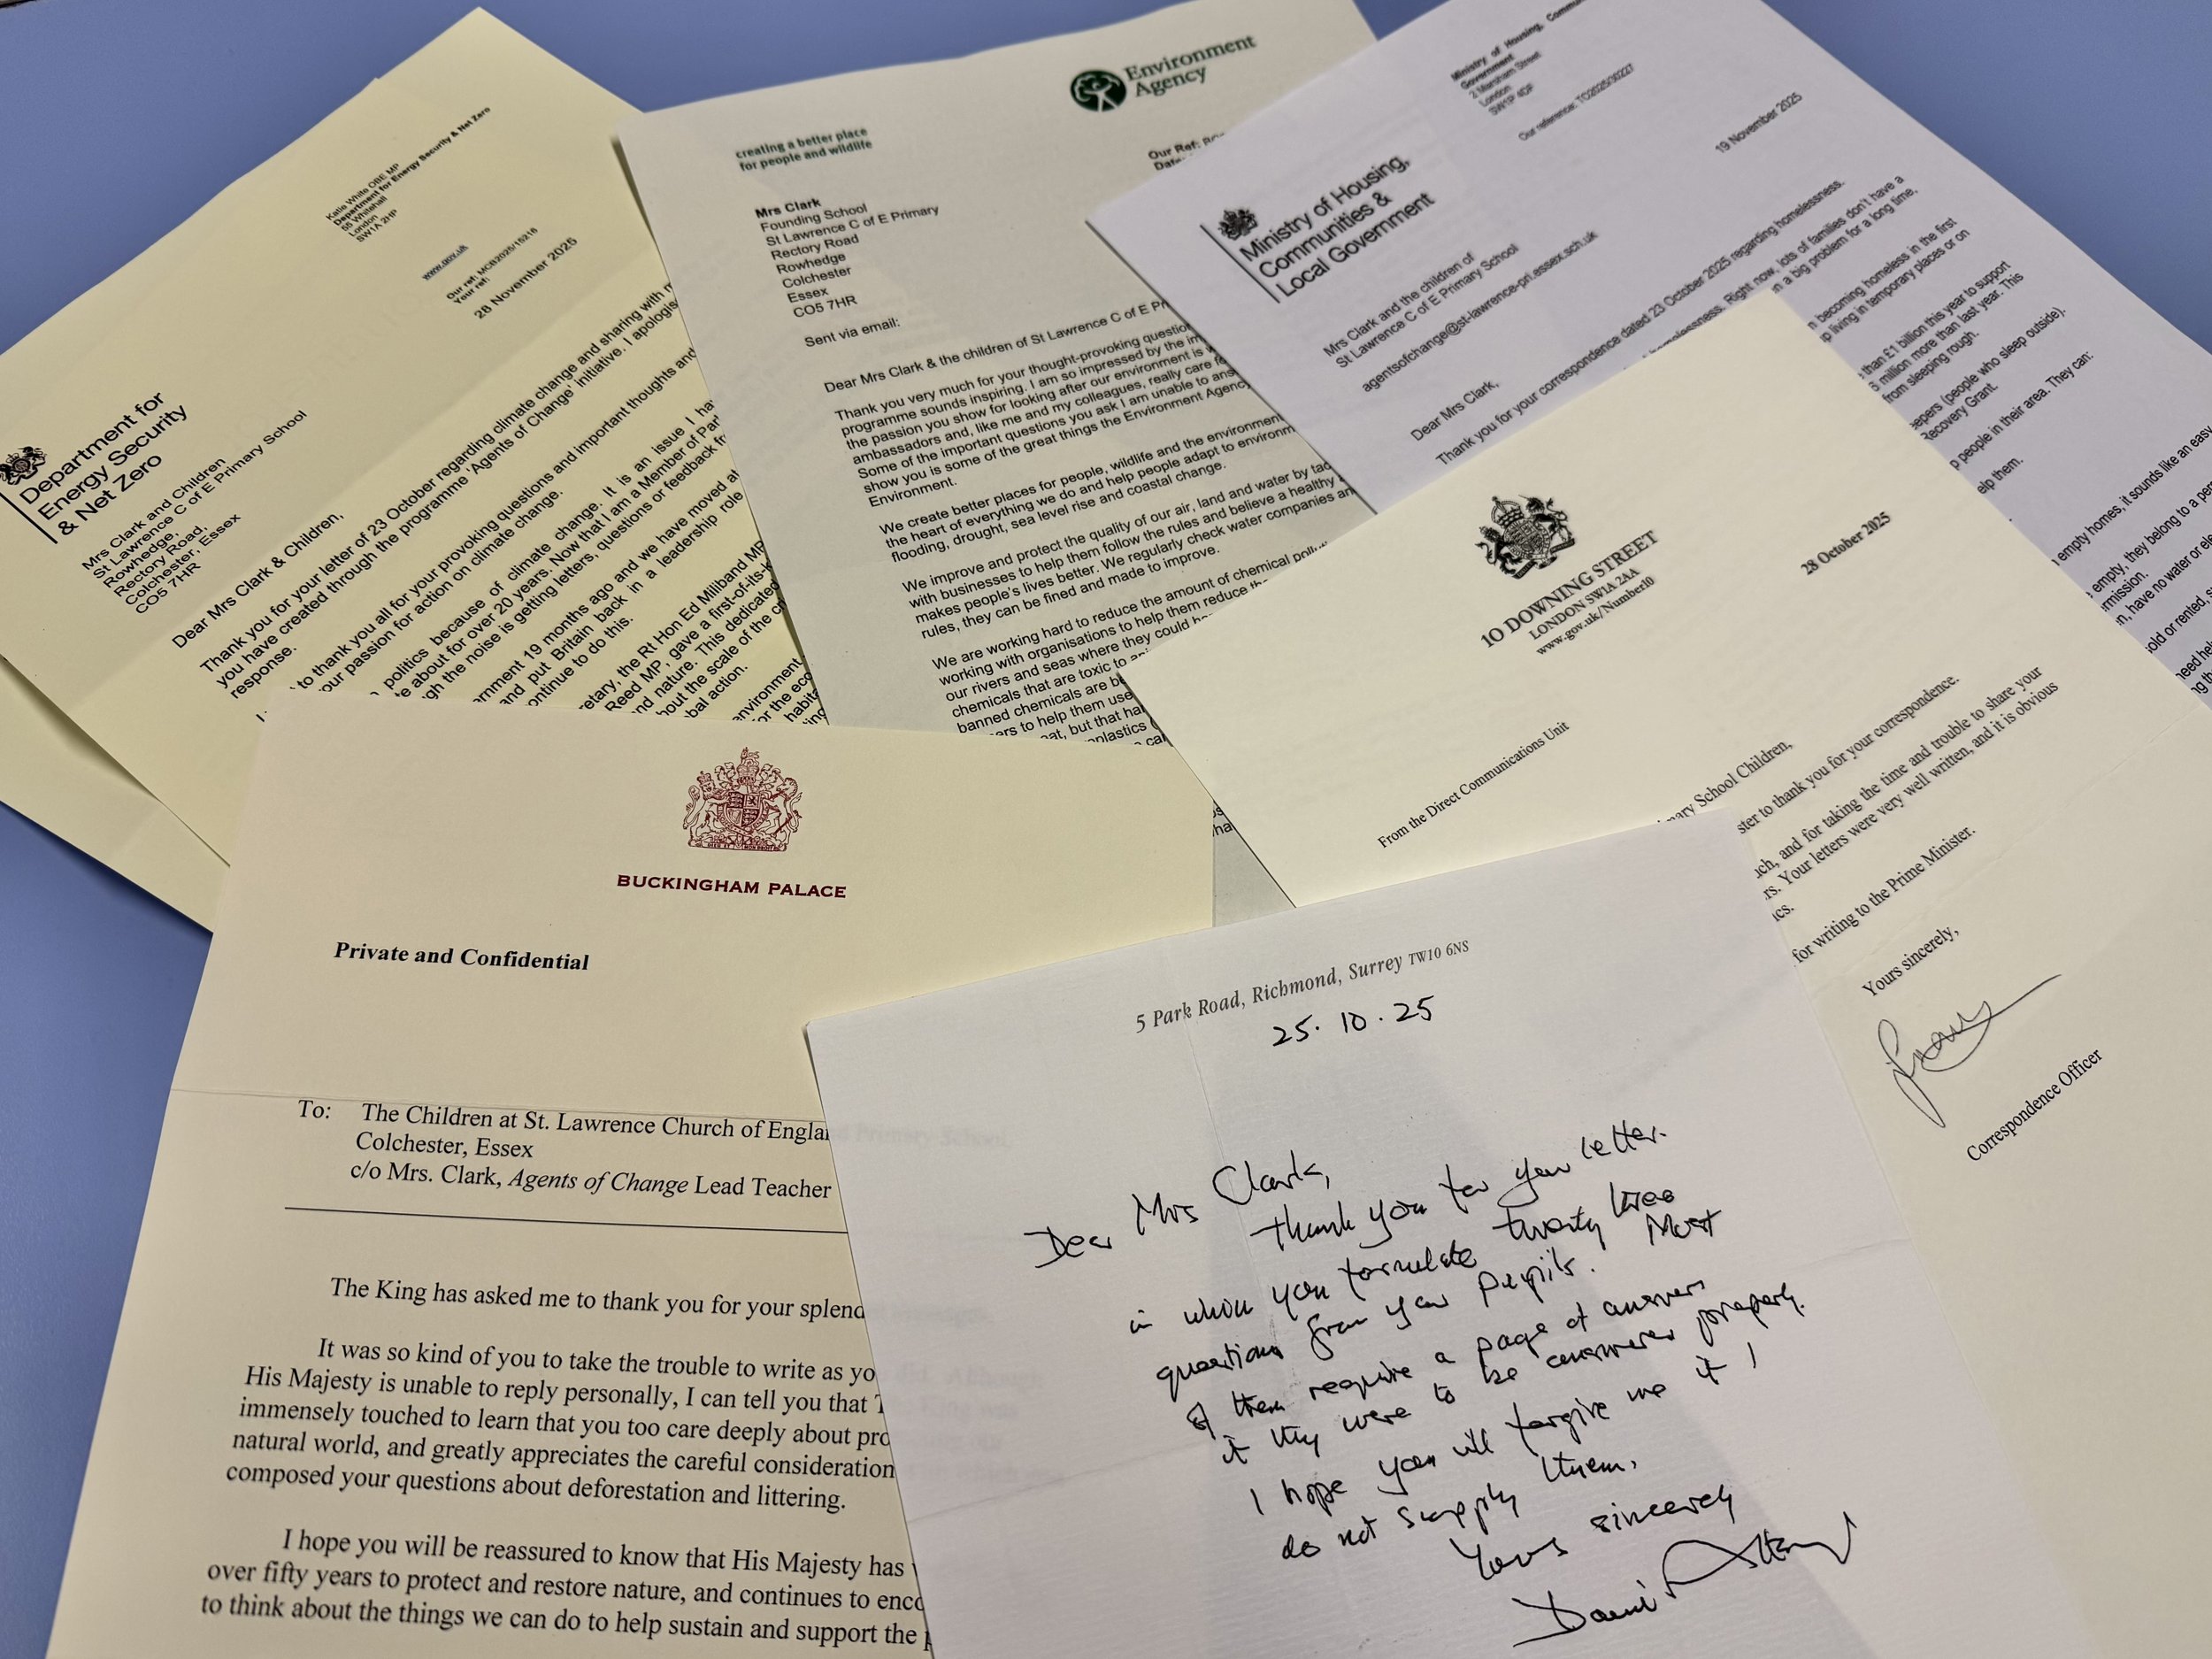 Katie White OBE MP
Department for Energy Security & Net Zero
55 Whitehall
London
SW1A 2HP
www.gov.uk
Our ref: MCB2025/15216
Your ref:
28 November 2025
Department for
Energy Security
& Net Zero
Mrs Clark and Children
St Lawrence C of E Primary School
Rowhedge,
Rectory Road,
Colchester, Essex
CO5 7HR
Dear Mrs Clark & Children,
Thank you for your letter of 23 October regarding climate change and sharing with
you have created through the programme 'Agents of Change' initiative. I apologise
response.
to thank you all for your provoking questions and important thoughts and
our passion for action on climate change.
politics because of climate change. It is an issue I
about for over 20 years. Now that I am a Member of
the noise is getting letters, questions or feedback
19 months ago and we have moved
and put Britain back in a leadership role
continue to do this.
the Rt Hon Ed Miliband MP
Reed MP, gave a
and nature. This dedicated
about the scale of the
action.
Environment
Agency
creating a better place
for people and wildlife
Our Ref:
Mrs Clark
Founding School
St Lawrence C of E Primary
Rectory Road
Rowhedge
Colchester
Essex
CO5 7HR
Sent via email:
Dear Mrs Clark & the children of St Lawrence C of E
Thank you very much for your thought-provoking
programme sounds inspiring. I am so impressed by the
the passion you show for looking after our environment is
ambassadors and, like me and my colleagues, really care
Some of the important questions you ask I am unable to
show you is some of the great things the Environment Agency
Environment.
We create better places for people, wildlife and the environment
the heart of everything we do and help people adapt to
flooding, drought, sea level rise and coastal change.
We improve and protect the quality of our air, land and water by
with businesses to help them follow the rules and believe a healthy
makes people's lives better. We regularly check water companies
rules, they can be fined and made to improve.
We are working hard to reduce the amount of chemical
working with organisations to help them reduce
our rivers and seas where they could
chemicals that are toxic to
banned chemicals are
to help them use
but that
Ministry of Housing,
Government
2 Marsham Street
London
SW1P 4DF
Our reference: TO2025/30227
19 November 2025
Ministry of Housing,
Communities &
Local Government
Mrs Clark and the children of
St Lawrence C of E Primary School
agentsofchange@st-lawrence-pri.essex.sch.uk
Dear Mrs Clark,
Thank you for your correspondence dated 23 October 2025 regarding homelessness.
homelessness. Right now, lots of families don't have a
a big problem for a long time,
becoming homeless in the first
living in temporary places or on
than £1 billion this year to support
million more than last year. This
from sleeping rough.
(people who sleep outside).
Recovery Grant.
people in their area. They can:
help them.
empty homes, it sounds like an easy
empty, they belong to a
have no water or
sold or rented,
10 DOWNING STREET
LONDON SW1A 2AA
www.gov.uk/Number10
28 October 2025
From the Direct Communications Unit
School Children,
to thank you for your correspondence.
and for taking the time and trouble to share your
Your letters were very well written, and it is obvious
for writing to the Prime Minister.
Yours sincerely,
Correspondence Officer
BUCKINGHAM PALACE
Private and Confidential
To: The Children at St. Lawrence Church of
Colchester, Essex
c/o Mrs. Clark, Agents of Change Lead Teacher
The King has asked me to thank you for your
It was so kind of you to take the trouble to write as
His Majesty is unable to reply personally, I can tell you that
immensely touched to learn that you too care deeply about
natural world, and greatly appreciates the careful consideration
composed your questions about deforestation and littering.
I hope you will be reassured to know that His Majesty has
over fifty years to protect and restore nature, and continues to
to think about the things we can do to help sustain and support the
5 Park Road, Richmond, Surrey TW10 6NS
25.10.25
Dear Mrs Clark,
Thank you for your letter.
in which you formulate twenty three
questions from your pupils. Most
of them require a page of answers
if they were to be answered properly.
I hope you will forgive me if I
do not supply them.
Yours sincerely